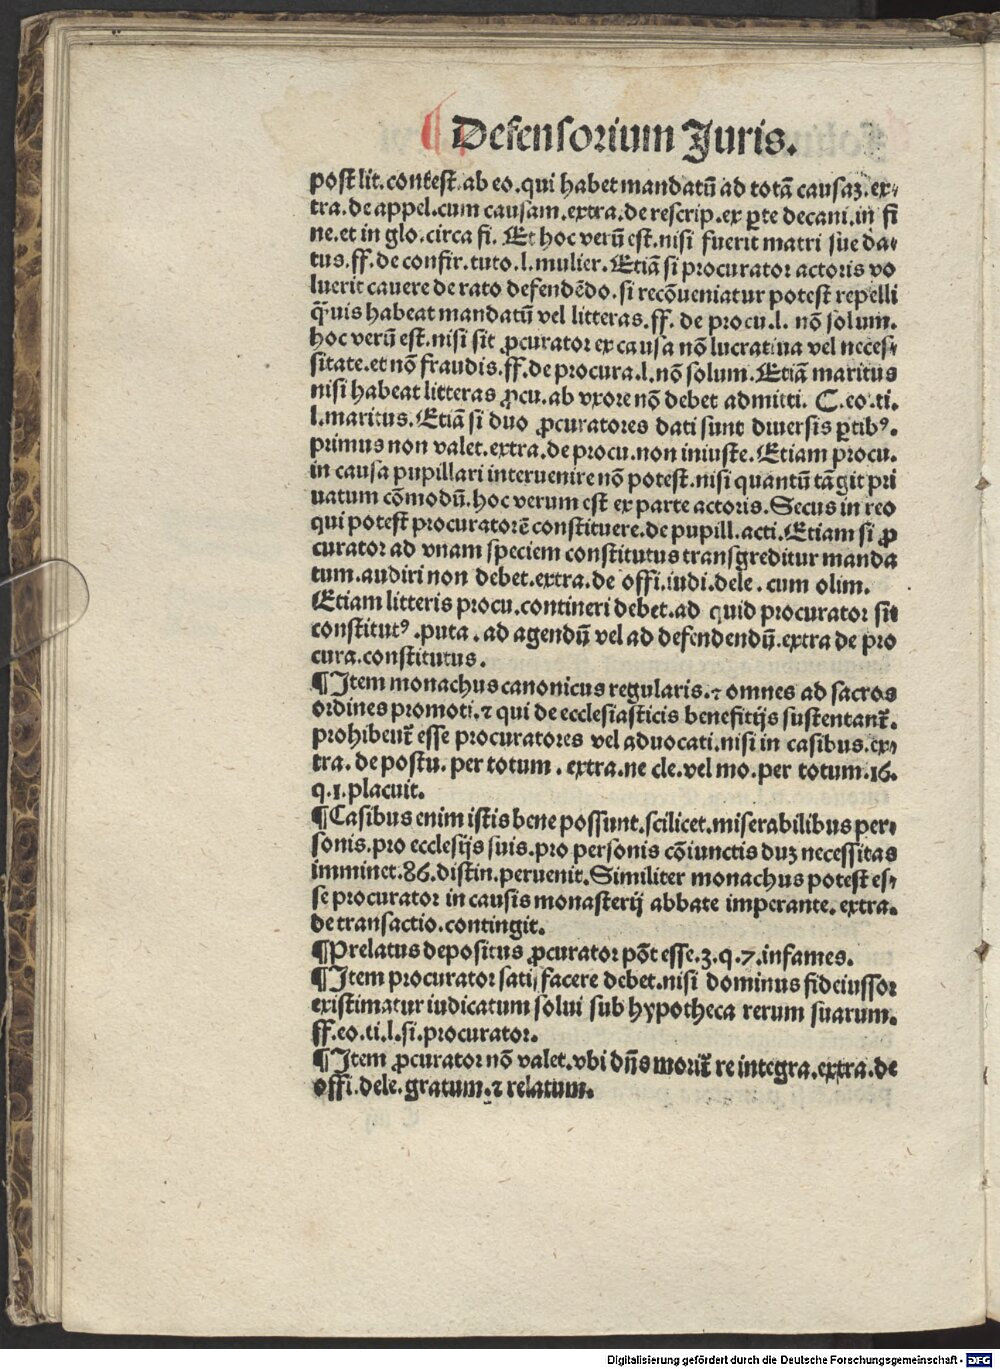 Defensorium Juris.
post lit. contest. ab eo. qui habet mandatū ad totā causaꝫ. ex⸗
tra. de appel. cum causam. extra. de rescrip. ex ꝑte decani. in fi
ne. et in glo. circa fi. Et hoc verū est. nisi fuerit matri sue da⸗
tus. ff. de confir. tuto. l. mulier. Etiā si procurator actoris vo
luerit cauere de rato defendēdo. si recōueniatur potest repelli
q̄uis habeat mandatū vel litteras. ff. de procu. l. nō solum.
hoc verū est. nisi sit ꝓcurator ex causa nō lucratiua vel neces⸗
sitate. et nō fraudis. ff. de procura. l. nō solum. Etiā maritus
nisi habeat litteras ꝓcu. ab vxore nō debet admitti. C. eo. ti.
l. maritus. Etiā si duo ꝓcuratores dati sunt diuersis ꝑtibꝰ.
primus non valet. extra. de procu. non iniuste. Etiam procu.
in causa pupillari interuenire nō potest. nisi quantū tāgit pri
uatum cōmodū. hoc verum est ex parte actoris. Secus in reo
qui potest procuratorē constituere. de pupill. acti. Etiam si ꝓ
curator ad vnam speciem constitutus transgreditur manda
tum. audiri non debet. extra. de offi. iudi. dele. cum olim.
Etiam litteris procu. contineri debet. ad quid procurator sit
constitutꝰ. puta. ad agendū vel ad defendendū. extra de pro
cura. constitutus.
¶ Item monachus canonicus regularis. ⁊ omnes ad sacros
ordines promoti. ⁊ qui de ecclesiasticis benefitijs sustentant̄.
prohibent̄ esse procuratores vel aduocati. nisi in casibus. ex⸗
tra. de postu. per totum. extra. ne cle. vel mo. per totum. 16.
q. 1. placuit.
¶ Casibus enim istis bene possunt. scilicet. miserabilibus per⸗
sonis. pro ecclesijs suis. pro personis cōiunctis duꝫ necessitas
imminet. 86. distin. peruenit. Similiter monachus potest es⸗
se procurator in causis monasterij abbate imperante. extra.
de transactio. contingit.
¶ Prelatus depositus ꝓcurator pōt esse. 3. q. 7. infames.
¶ Item procurator satisfacere debet. nisi dominus fideiussor
existimatur iudicatum solui sub hypotheca rerum suarum.
ff. eo. ti. l. si. procurator.
¶ Item ꝓcurator nō valet. vbi dn̄s morit̄ re integra. extra. de
offi. dele. gratum. ⁊ relatum.
Digitalisierung gefördert durch die Deutsche Forschungsgemeinschaft - DFG